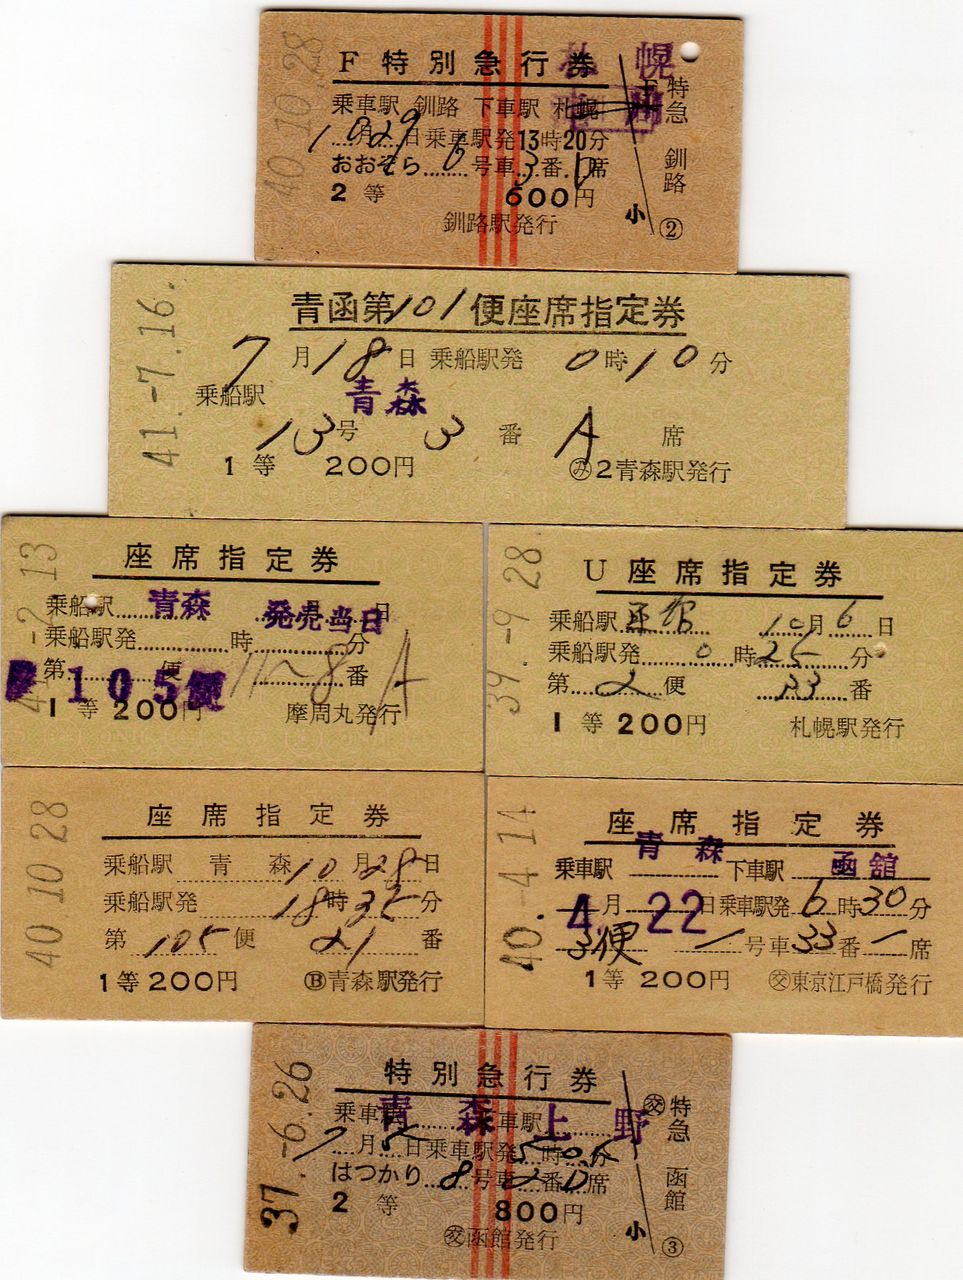 40.10.28
F特別急行券
札幌
乗車駅 釧路 下車駅 札幌
10月29日乗車駅発13時20分
おおぞら 6号車 3番 D席
2等 600円
釧路駅発行
特急 釧路 ②
小
41.-7.16.
青函第101便座席指定券
7月18日 乗船駅発 0時10分
乗船駅 青森
13号 3番 A席
1等 200円 2青森駅発行
-2 13
座席指定券
乗船駅 青森 月 日
発売当日
乗船駅発 時 分
第 105便 番 A
1等 200円 摩周丸発行
39 -9 28
U座席指定券
乗船駅 10月6日
乗船駅発 0時25分
第2便 33番
1等 200円 札幌駅発行
40 10 28
座席指定券
乗船駅 青森 10月28日
乗船駅発 18時35分
第105便 21番
1等 200円 Ⓑ青森駅発行
40.-4.14
座席指定券
乗車駅 青森 下車駅 函館
4月22日乗車駅発 6時30分
3便 一号車 33番 一席
1等 200円 ㊋東京江戸橋発行
37.-6.26
特別急行券
乗車駅 青森 下車駅 上野
7月5日乗車駅発 5時05分
はつかり 8号車 2番 D席
2等 800円
函館発行
特急 函館 ③
小